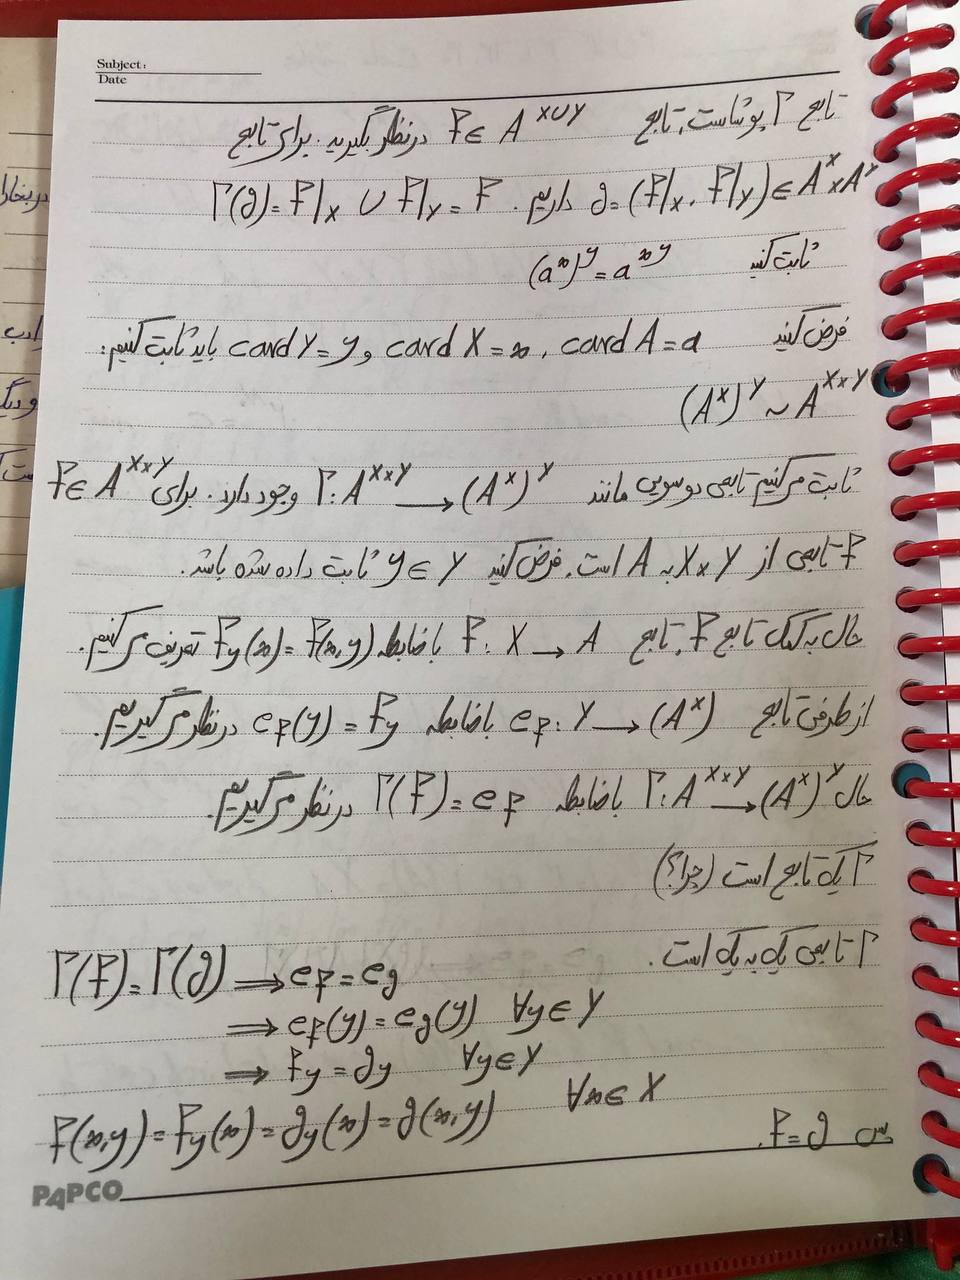 Subject:
Date
تابع Γ پوشاست، تابع F ∈ A^{X∪Y} در نظر بگیرید. برای تابع
g = (F|x, F|y) ∈ A^X × A^Y داریم. Γ(g) = F|x ∪ F|y = F
ثابت کنید (a^x)^y = a^{xy}
فرض کنید card A = a , card X = x و card Y = y باید ثابت کنیم:
(A^X)^Y ~ A^{X×Y}
ثابت می‌کنیم تابعی دوسویی مانند Γ: A^{X×Y} → (A^X)^Y وجود دارد. برای F ∈ A^{X×Y}
F تابعی از X×Y به A است. فرض کنید y ∈ Y ثابت داده شده باشد.
حال به کمک تابع F، تابع F: X → A با ضابطه Fy(x) = F(x,y) تعریف می‌کنیم.
از طرفی تابع eF: Y → (A^X) با ضابطه eF(y) = Fy در نظر می‌گیریم.
حال Γ: A^{X×Y} → (A^X)^Y با ضابطه Γ(F) = eF در نظر می‌گیریم.
Γ یک تابع است (چرا؟)
Γ تابعی یک به یک است.
Γ(F) = Γ(g) ⟹ eF = eg
⟹ eF(y) = eg(y) ∀y ∈ Y
⟹ Fy = gy ∀y ∈ Y
F(x,y) = Fy(x) = gy(x) = g(x,y) ∀x ∈ X
پس F = g.
PAPCO
در بخارا
ادب
و دیگر